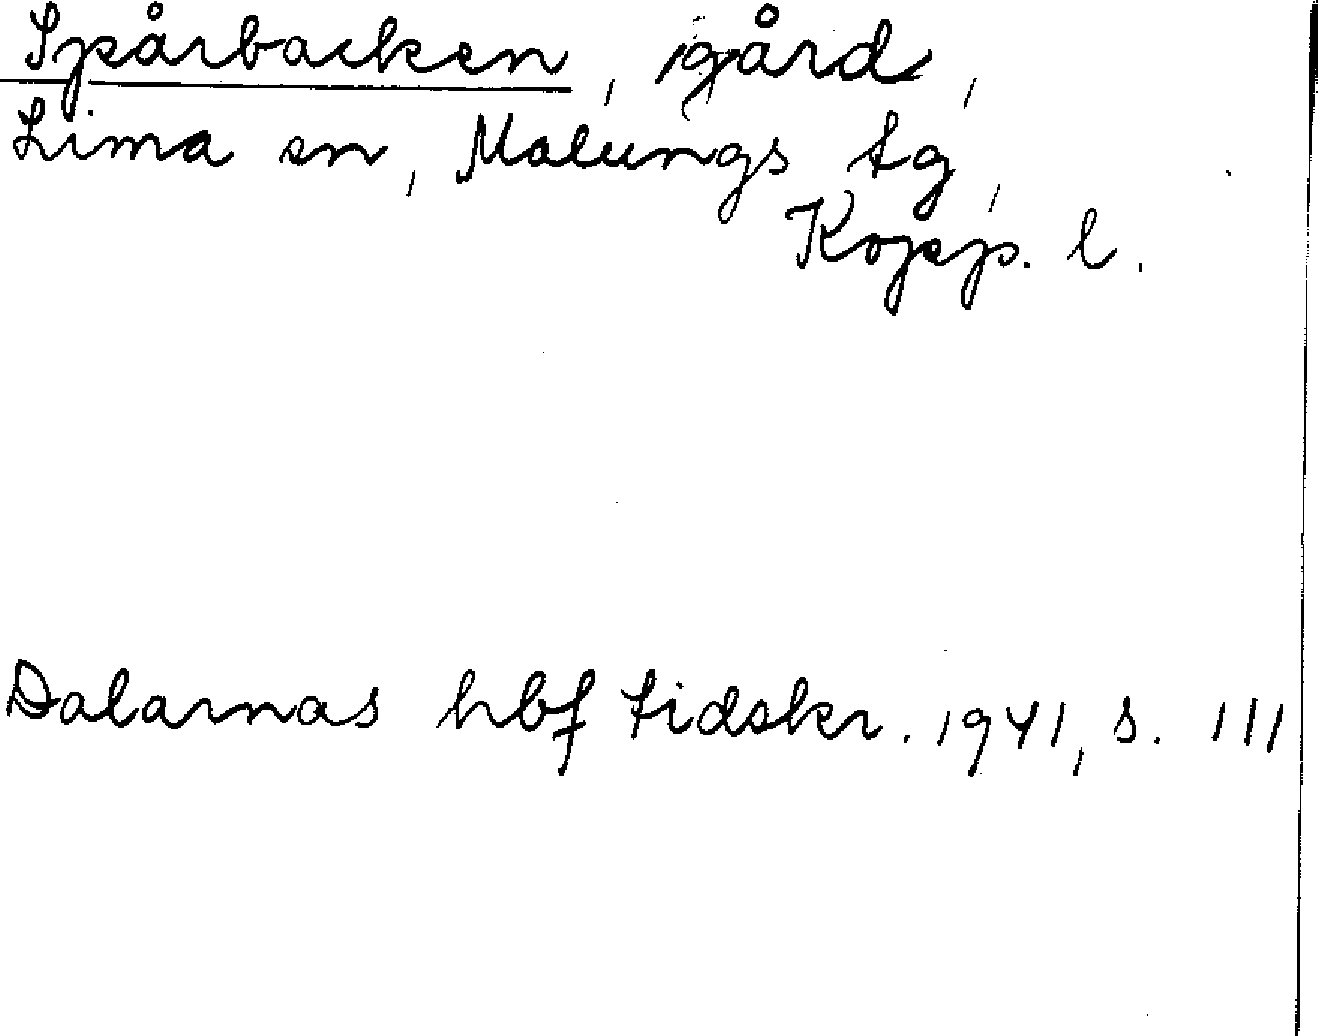 Spårbacken, gård,
Lima sn, Malungs tg,
Kopp. l.
Dalarnas hbf tidskr. 1941, s. 111